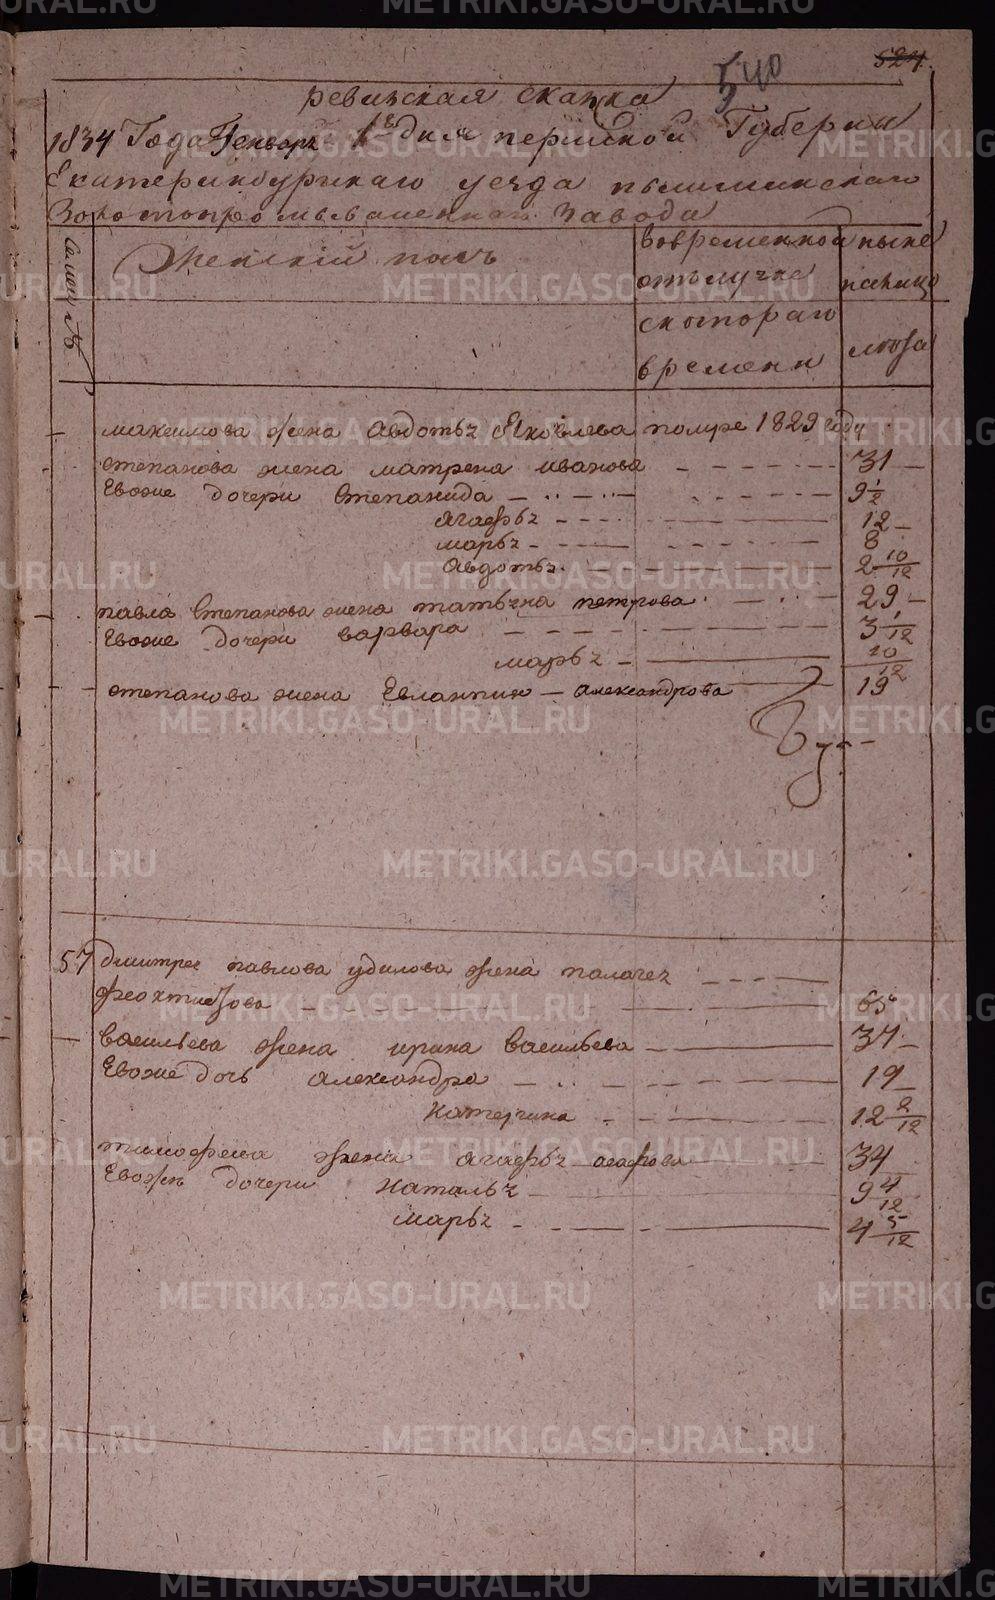 540
524.
ревизская сказка
1834 Года Генваря 1го дня пермской Губернии
Екатеринбургскаго уезда пышминскаго
Золотопромываленнаго Завода
семей №
Женский полъ
вовременной отълучке
ныне налицо
скотораго времени
лета
максимова жена Авдотья Яковлева помре 1829 году
степанова жена матрена иванова 31
Евоже дочери Степанида 9 1/2
Агафья 12
марья 8
Авдотья 2 10/12
павла Степанова жена татьяна петрова 29
Евоже дочери варвара 3 1/12
марья 10/12
степанова жена Евлампия александрова 19
57 дмитрея павлова удилова жена палагея
феоктистова 65
васильева жена ирина васильева 37
Евоже дочь александра 19
катерина 12 2/12
тимофеева жена агафья 34
Евоже дочери наталья 9 4/12
марья 4 5/12
METRIKI.GASO-URAL.RU